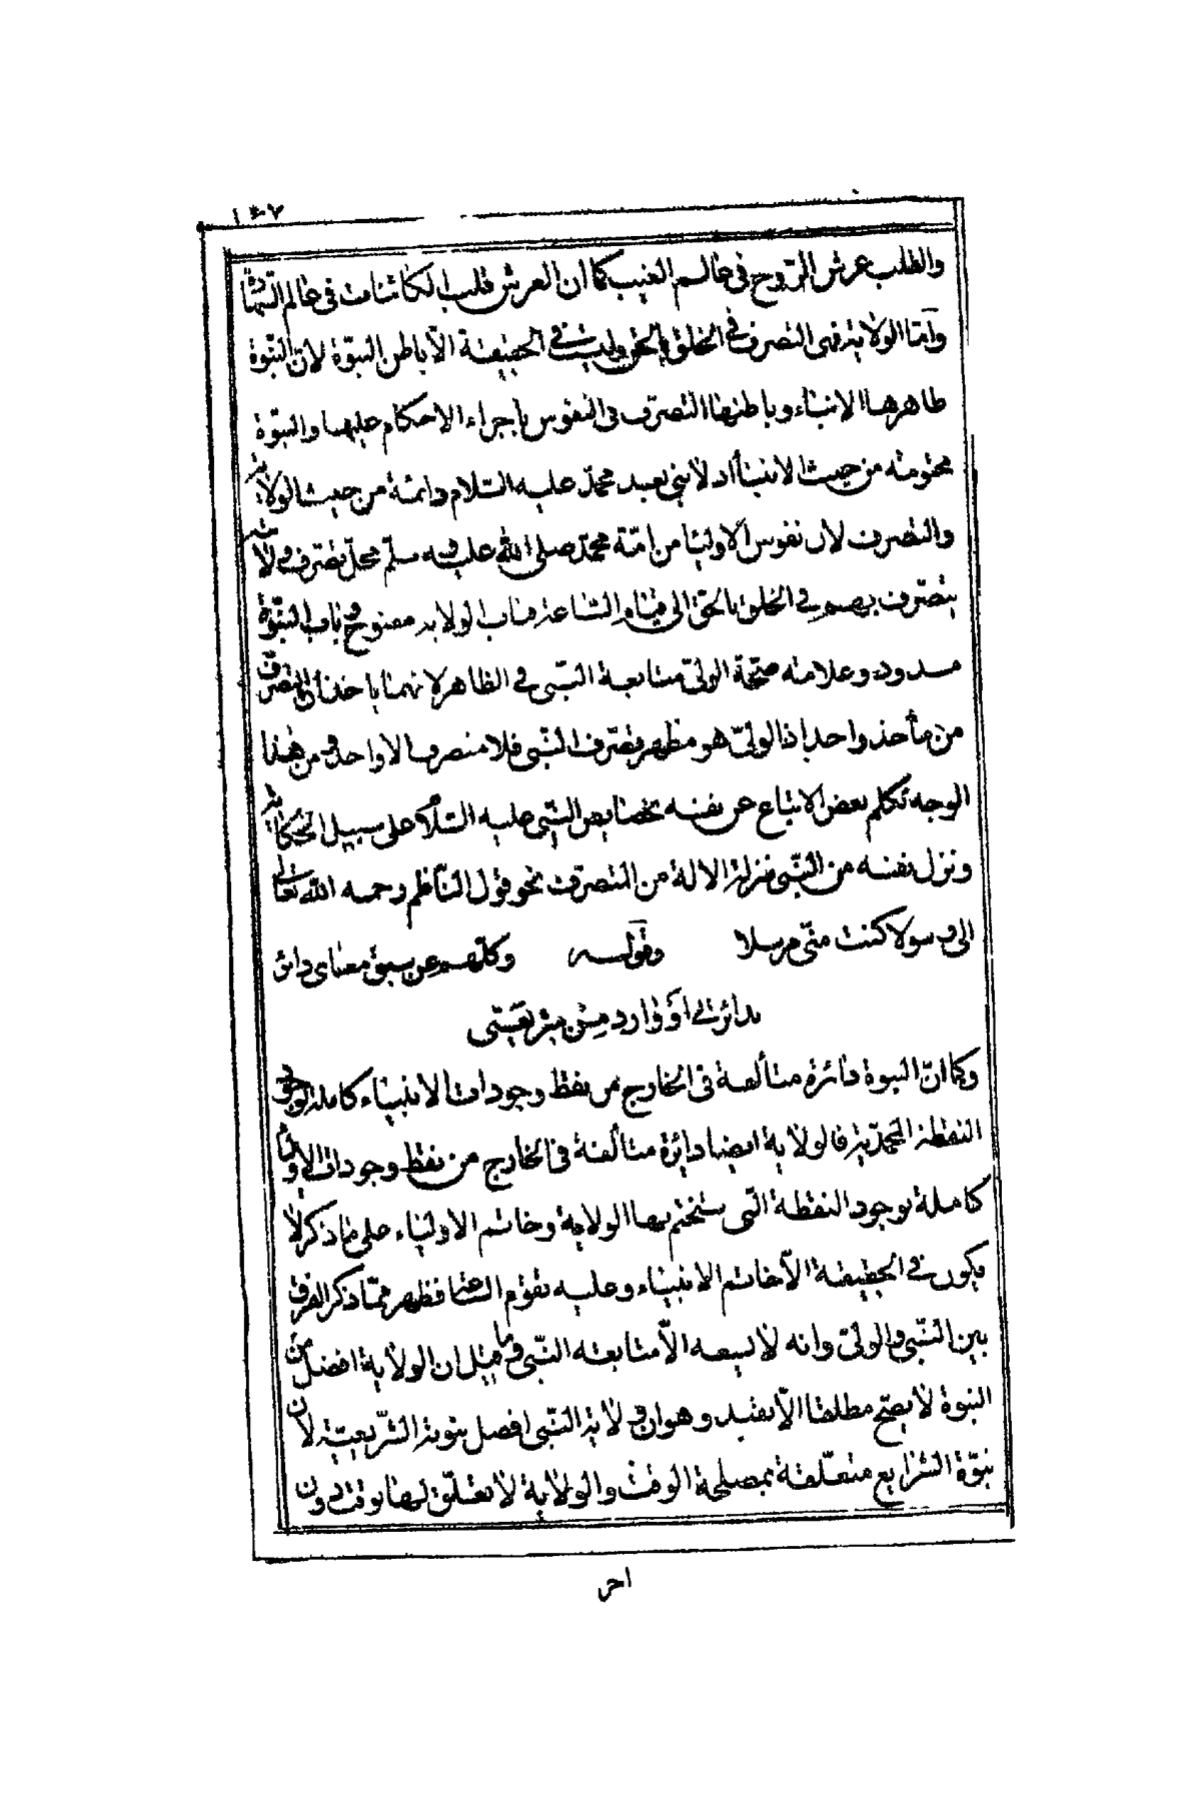 ١٠٧
والقلب عرش الروح في عالم الغيب كما ان العرش قلب الكائنات في عالم الشهادة
وأما الولاية فهي التصرف في الخلق بالحق وليست في الحقيقة الا باطن النبوة لان النبوة
ظاهرها الانباء وباطنها التصرف في النفوس باجراء الاحكام عليها والنبوة
مختومة من حيث الانباء اذ لا نبي بعد محمد عليه السلام دائمة من حيث الولاية
والتصرف لان نفوس الاوليا من امة محمد صلى الله عليه وسلم محل تصرف ولا
يتصرف بهم في الخلق بالحق الى قيام الساعة فباب الولاية مفتوح وباب النبوة
مسدود وعلامة صحة الولي متابعة النبي في الظاهر لانهما ياخذان التصرف
من مأخذ واحد اذ الولي هو مظهر تصرف النبي فلا متصرف الا واحد ومن هذا
الوجه تكلم بعض الاتباع عن نفسه بخصايص النبي عليه السلام على سبيل الحكاية
ونزل نفسه من النبي منزلة الالة من التصرف نحو قول الناظم رحمه الله تعالى
الي رسولا كنت مني مرسلا وقوله وكلهم عن سبق معناي دائر
بدائرتي او وارد من شريعتي
وكما ان النبوة دائرة متألفة في الخارج من نقط وجودات الانبياء كاملة بوجود
النقطة المحمدية فالولاية ايضا دايرة متألفة في الخارج من نقط وجودات الاولياء
كاملة بوجود النقطة التي ستختم بها الولاية وخاتم الاولياء على ما ذكر لا
يكون في الحقيقة الا خاتم الانبياء وعليه تقوم الساعة فظهر مما ذكر الفرق
بين النبي والولي وانه لا يسعه الا متابعة النبي وما قيل ان الولاية افضل من
النبوة لا يصح مطلقا الا بقيد وهو ان ولاية النبي افضل من نبوته التشريعية لان
نبوة الشرايع متعلقة بمصلحة الوقت والولاية لا تعلق لها بوقت دون
اخر